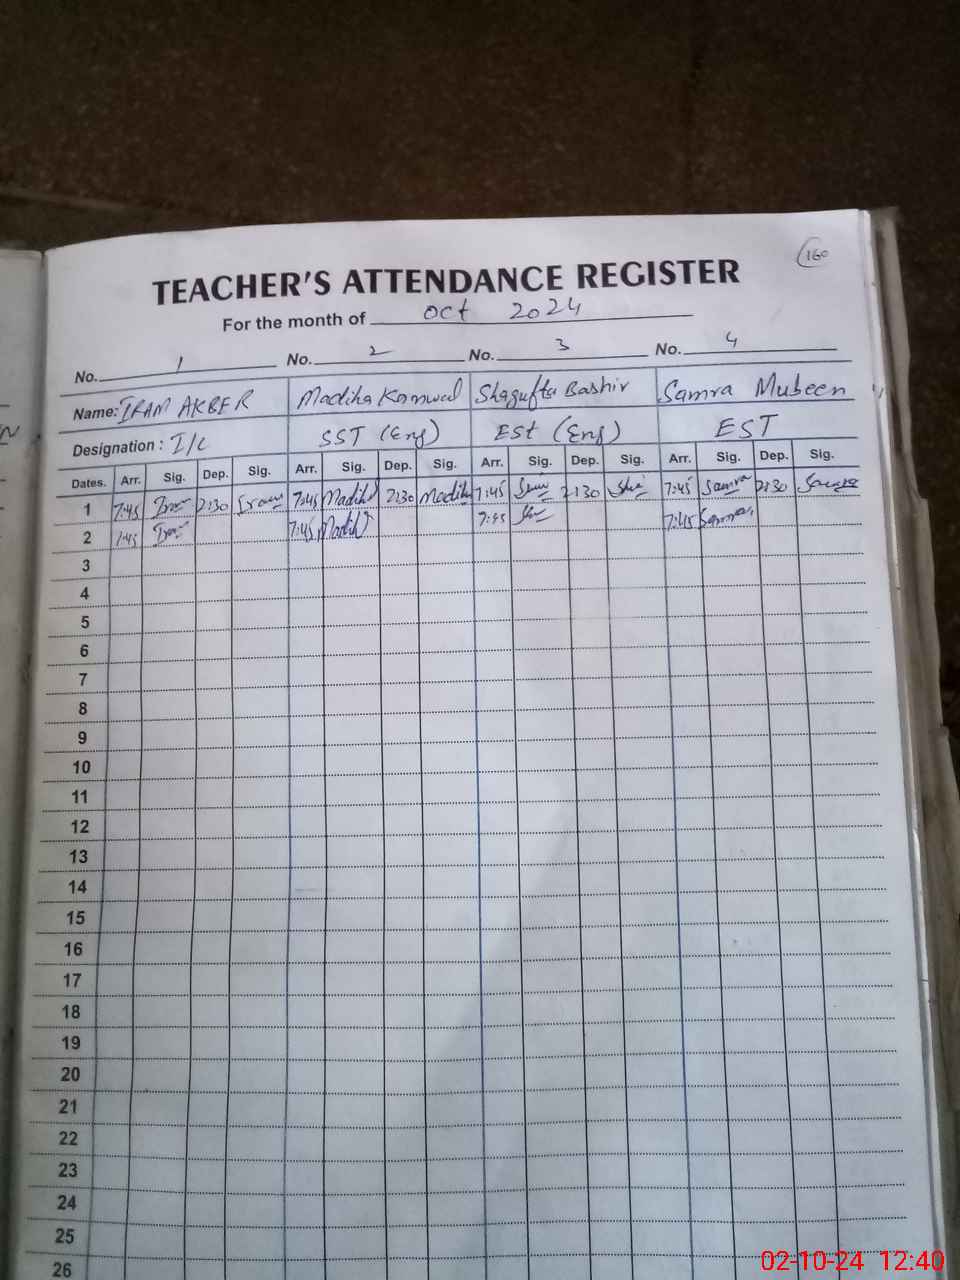 160
TEACHER'S ATTENDANCE REGISTER
For the month of Oct 2024
No. 1 No. 2 No. 3 No. 4
Name: IRAM AKBER Madiha Kanwal Shagufta Bashir Samra Mubeen
Designation: I/C SST (Eng) ESt (Eng) EST
Dates. Arr. Sig. Dep. Sig. Arr. Sig. Dep. Sig. Arr. Sig. Dep. Sig. Arr. Sig. Dep. Sig.
1 7:45 2:30 7:45 Madiha 2:30 Madiha 7:45 2:30 7:45 Samra 2:30 Samra
2 7:45 7:45 Madiha 7:45 7:45 Samra
3
4
5
6
7
8
9
10
11
12
13
14
15
16
17
18
19
20
21
22
23
24
25
26
02-10-24 12:40